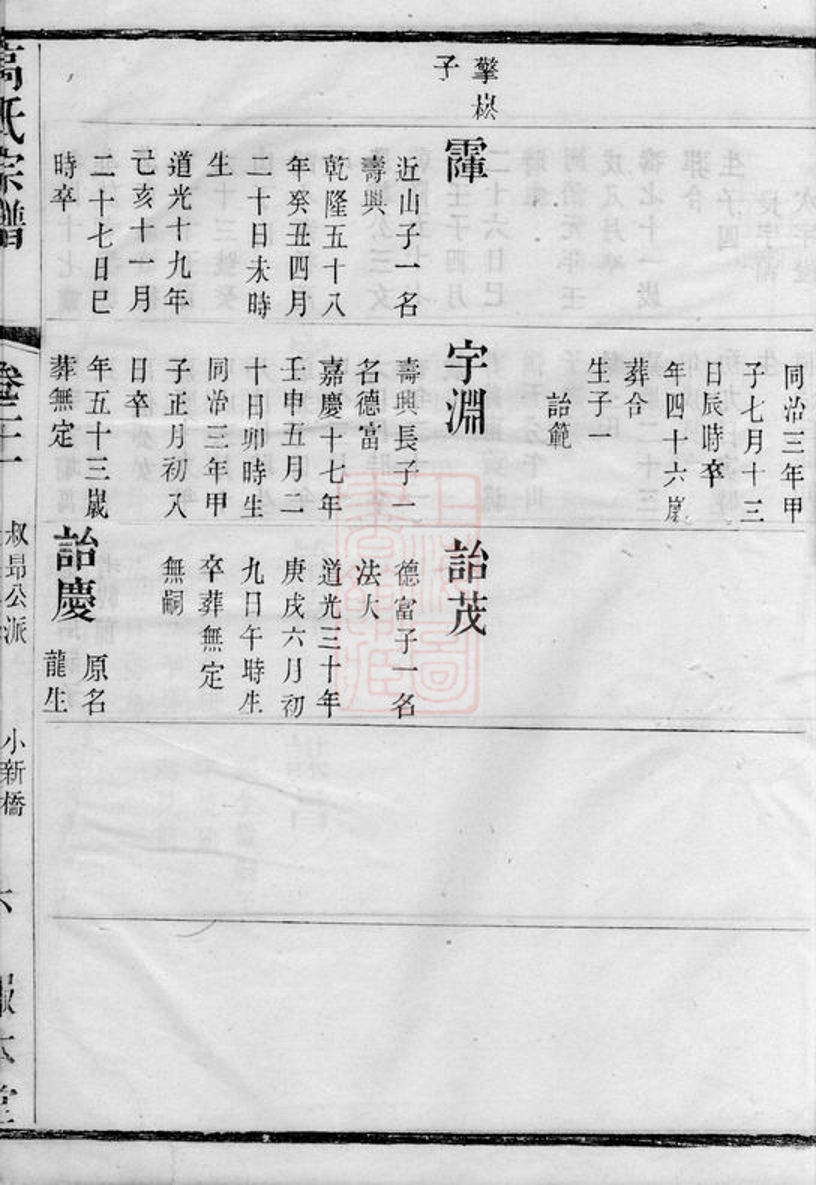 擎崧
子
霫
近山子一名
壽興
乾隆五十八
年癸丑四月
二十日未時
生
道光十九年
己亥十一月
二十七日巳
時卒
同治三年甲
子七月十三
日辰時卒
年四十六歲
葬合
生子一
詒範
宇淵
壽興長子一
名德富
嘉慶十七年
壬申五月二
十日卯時生
同治三年甲
子正月初八
日卒
年五十三歲
葬無定
詒茂
德富子一名
法大
道光三十年
庚戌六月初
九日午時生
卒葬無定
無嗣
詒慶
原名
龍生
高氏宗譜
叔昂公派
小新橋
六
報本堂